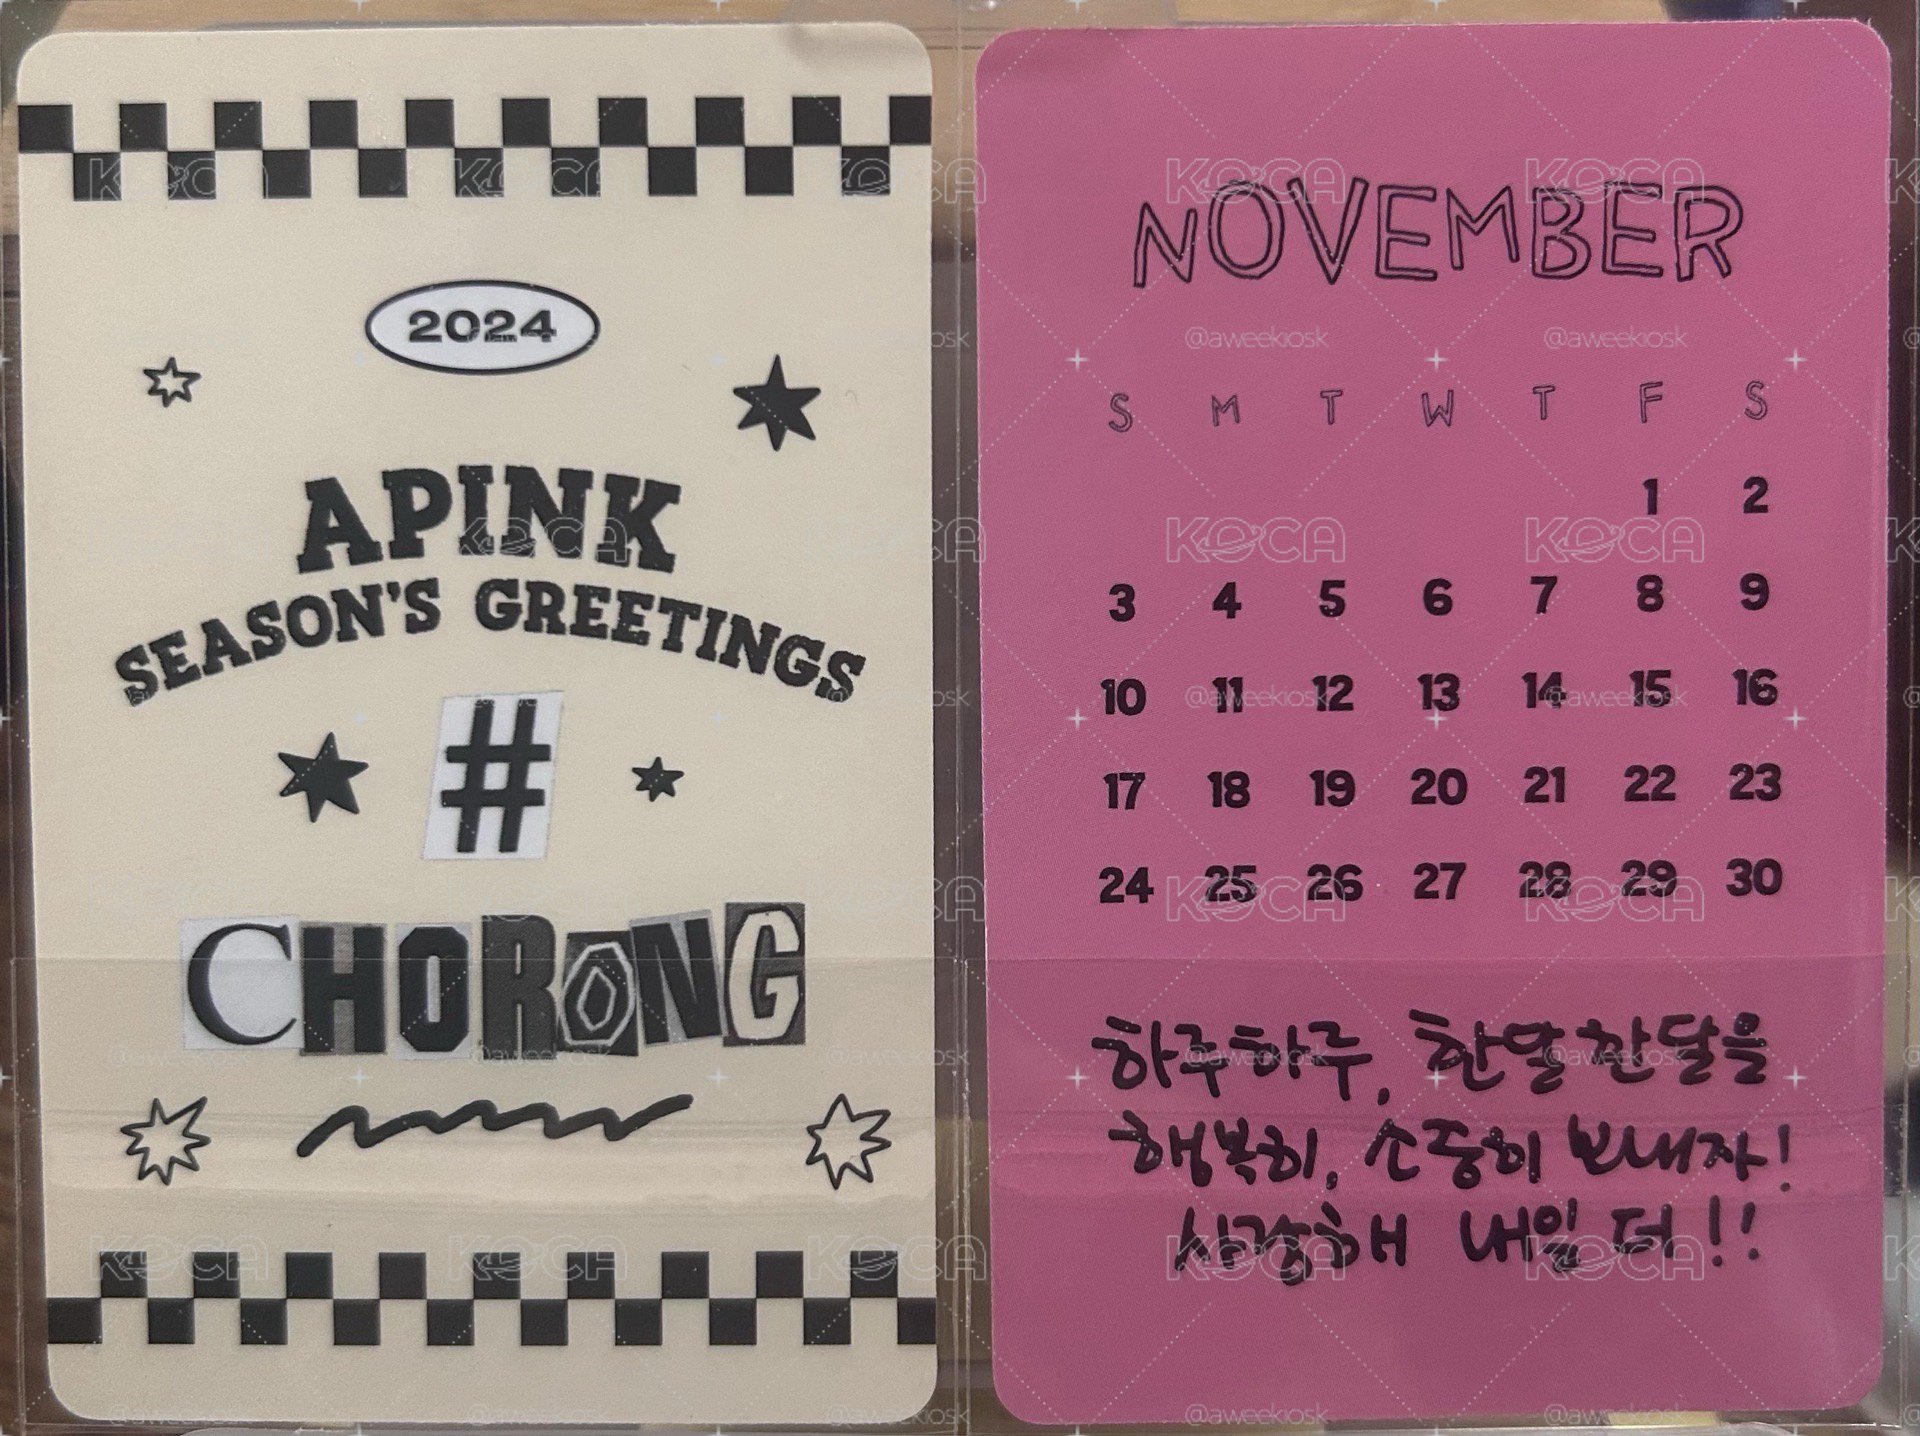 2024
APINK
SEASON'S GREETINGS
#
CHORONG
NOVEMBER
S M T W T F S
1 2
3 4 5 6 7 8 9
10 11 12 13 14 15 16
17 18 19 20 21 22 23
24 25 26 27 28 29 30
하루하루, 한달한달을
행복히, 소중히 보내자!
사랑해 내일 더!!
KOCA
@aweekiosk